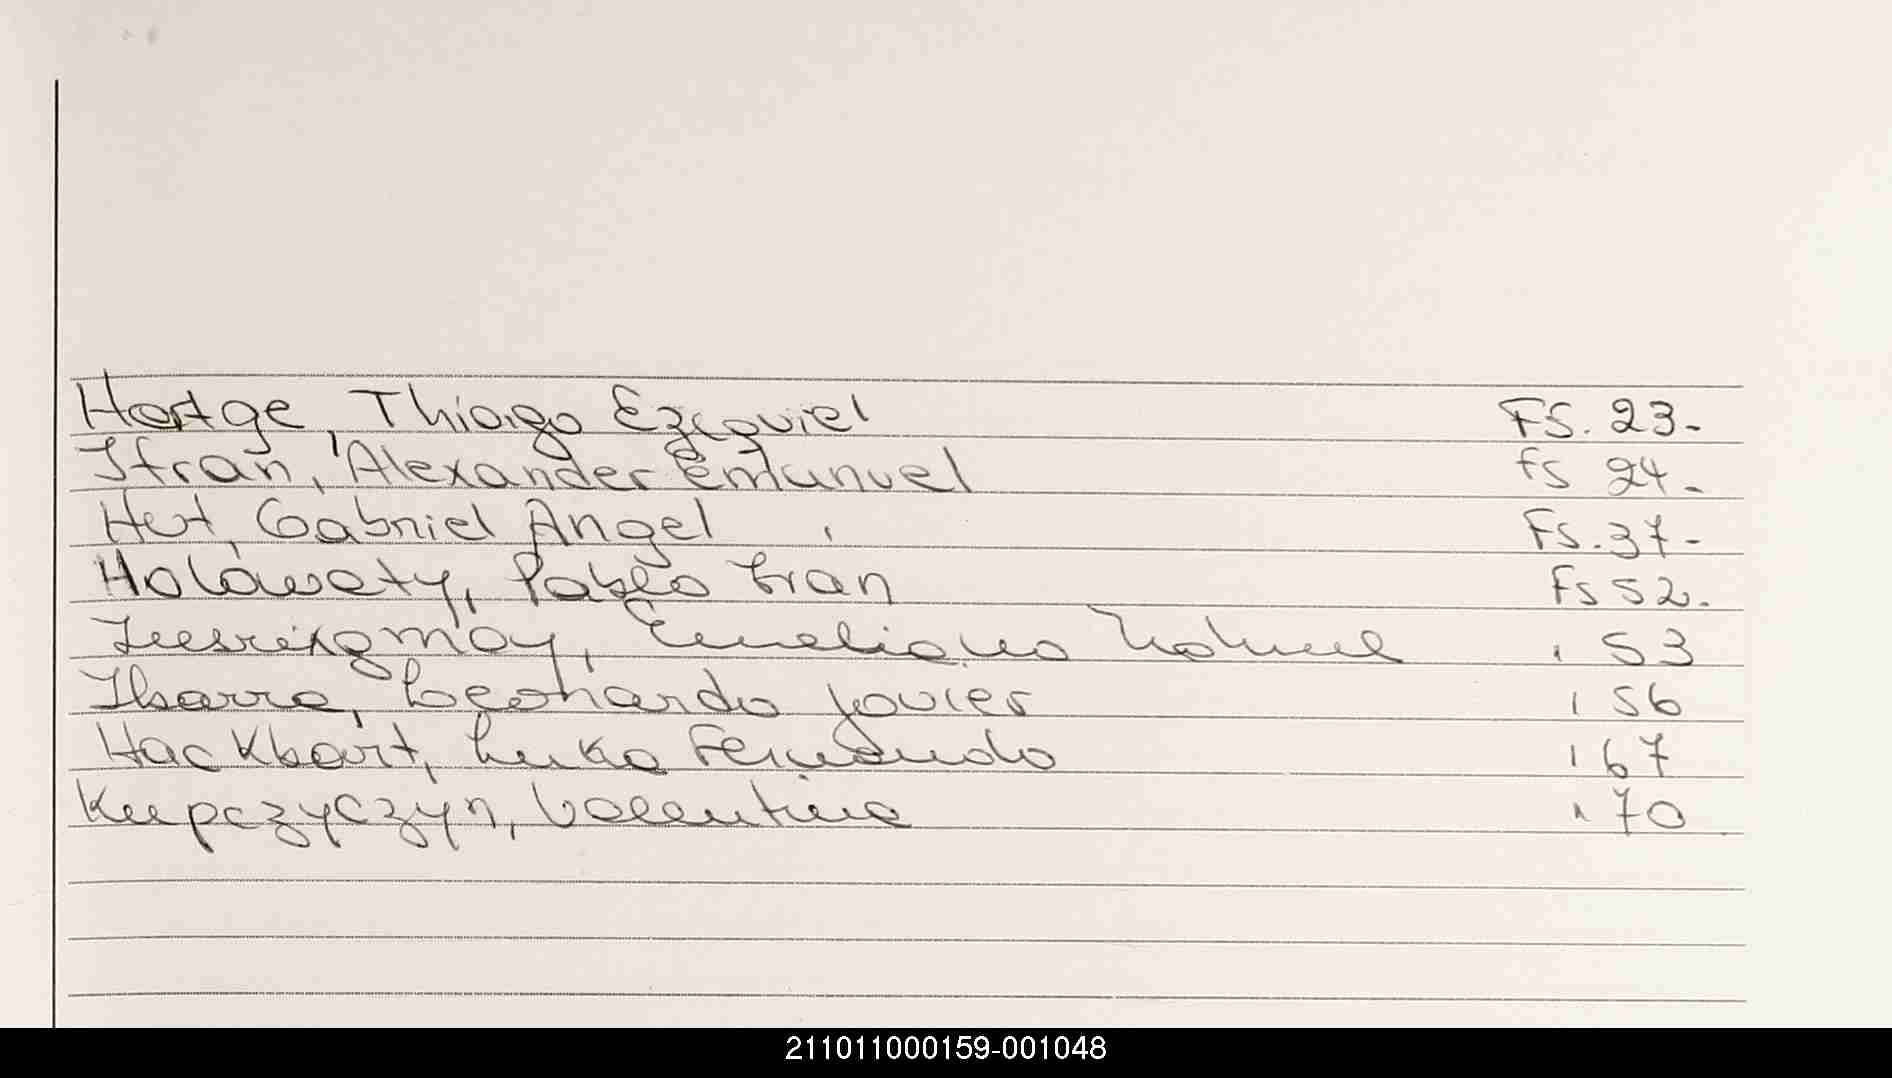 Hortge, Thiago Ezequiel FS. 23-
Ifran, Alexander Emanuel FS 24-
Hut, Gabriel Angel FS. 37-
Holowaty, Pablo Fran FS 52.
Emeliano Nahuel " 53
Ibarra, Leonardo Javier " 56
Hackbart, Luka Fernando " 67
Kupczyczyn, Valentina " 70
211011000159-001048